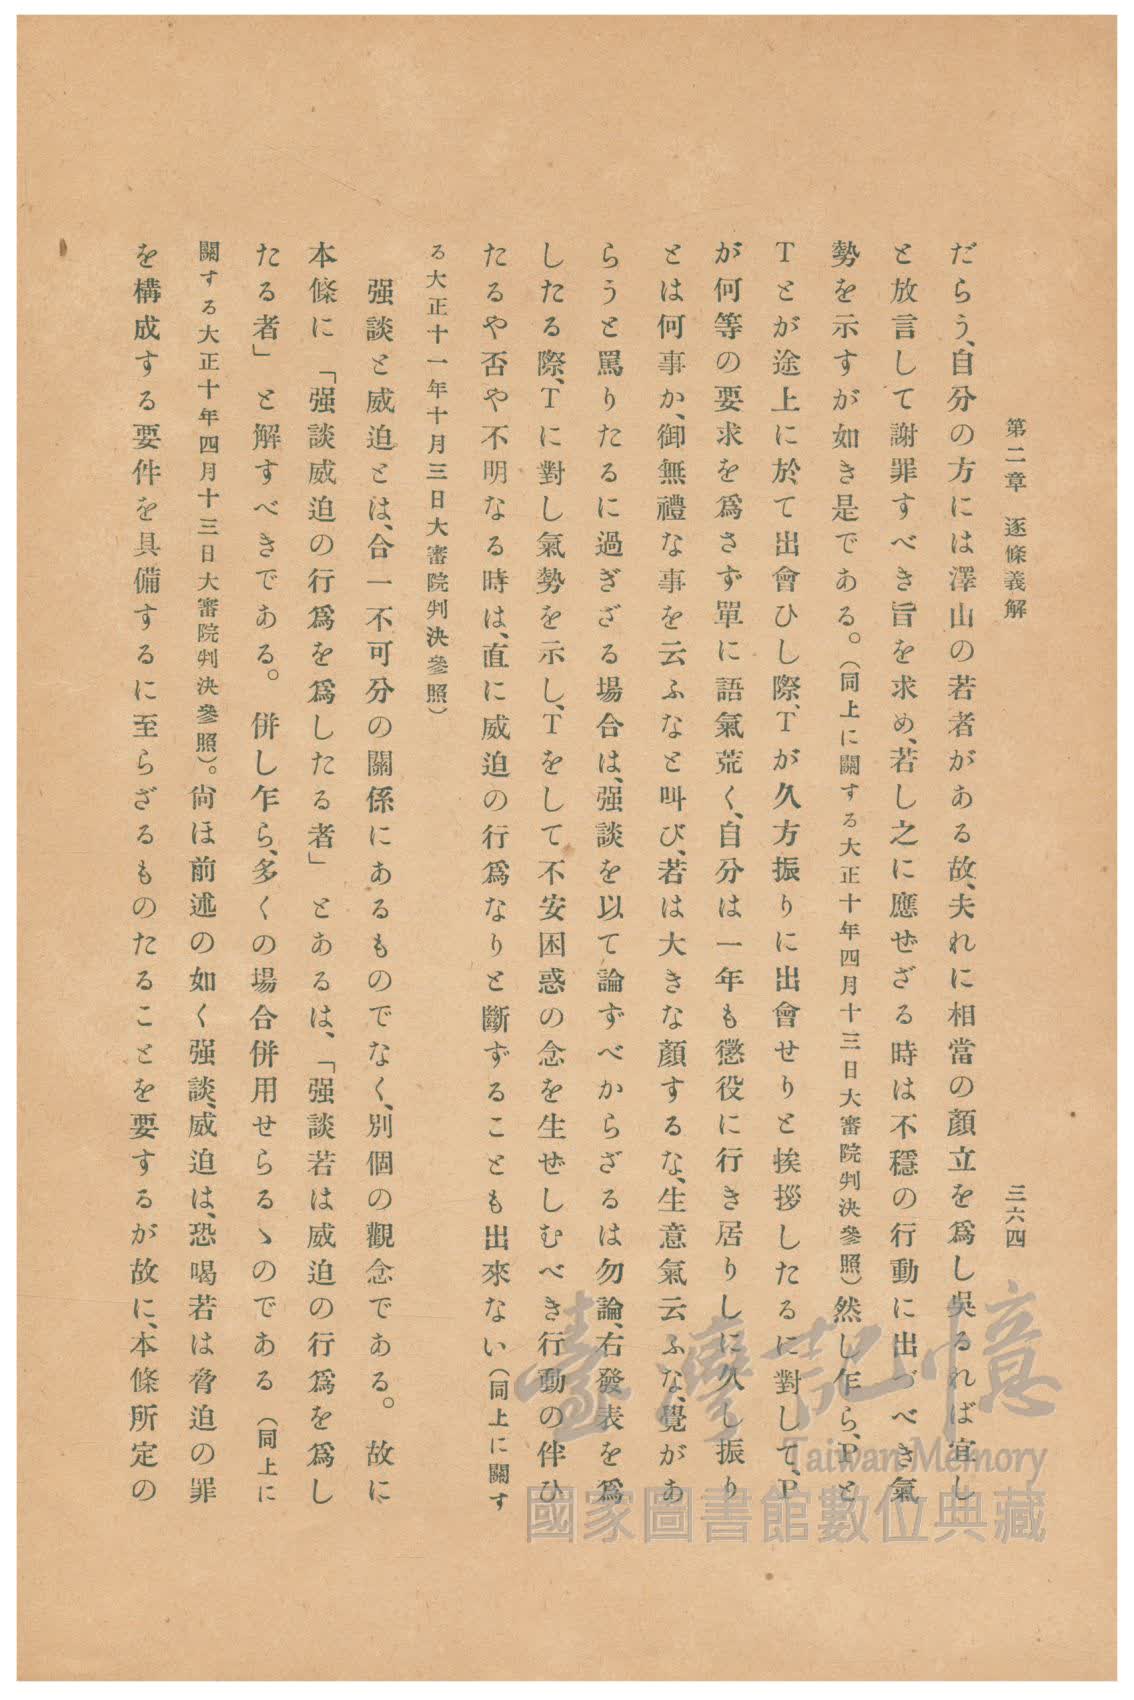 第二章　逐條義解
三六四
だらう、自分の方には澤山の若者がある故、夫れに相當の顏立を爲し吳るれば宜し
と放言して謝罪すべき旨を求め、若し之に應ぜざる時は不穩の行動に出づべき氣
勢を示すが如き是である。（同上に關する大正十年四月十三日大審院判決參照）然し乍ら、Pと
Tとが途上に於て出會ひし際、Tが久方振りに出會せりと挨拶したるに對して、P
が何等の要求を爲さず單に語氣荒く、自分は一年も懲役に行き居りしに久し振り
とは何事か、御無禮な事を云ふなと叫び、若は大きな顏するな、生意氣云ふな、覺があ
らうと罵りたるに過ぎざる場合は、强談を以て論ずべからざるは勿論、右發表を爲
したる際、Tに對し氣勢を示し、Tをして不安困惑の念を生ぜしむべき行動の伴ひ
たるや否や不明なる時は、直に威迫の行爲なりと斷ずることも出來ない（同上に關す
る大正十一年十月三日大審院判決參照）
强談と威迫とは、合一不可分の關係にあるものでなく、別個の觀念である。故に
本條に「强談威迫の行爲を爲したる者」とあるは、「强談若は威迫の行爲を爲し
たる者」と解すべきである。併し乍ら、多くの場合併用せらるゝのである（同上に
關する大正十年四月十三日大審院判決參照）。尙ほ前述の如く强談、威迫は、恐喝若は脅迫の罪
を構成する要件を具備するに至らざるものたることを要するが故に、本條所定の
臺灣記憶
Taiwan Memory
國家圖書館數位典藏